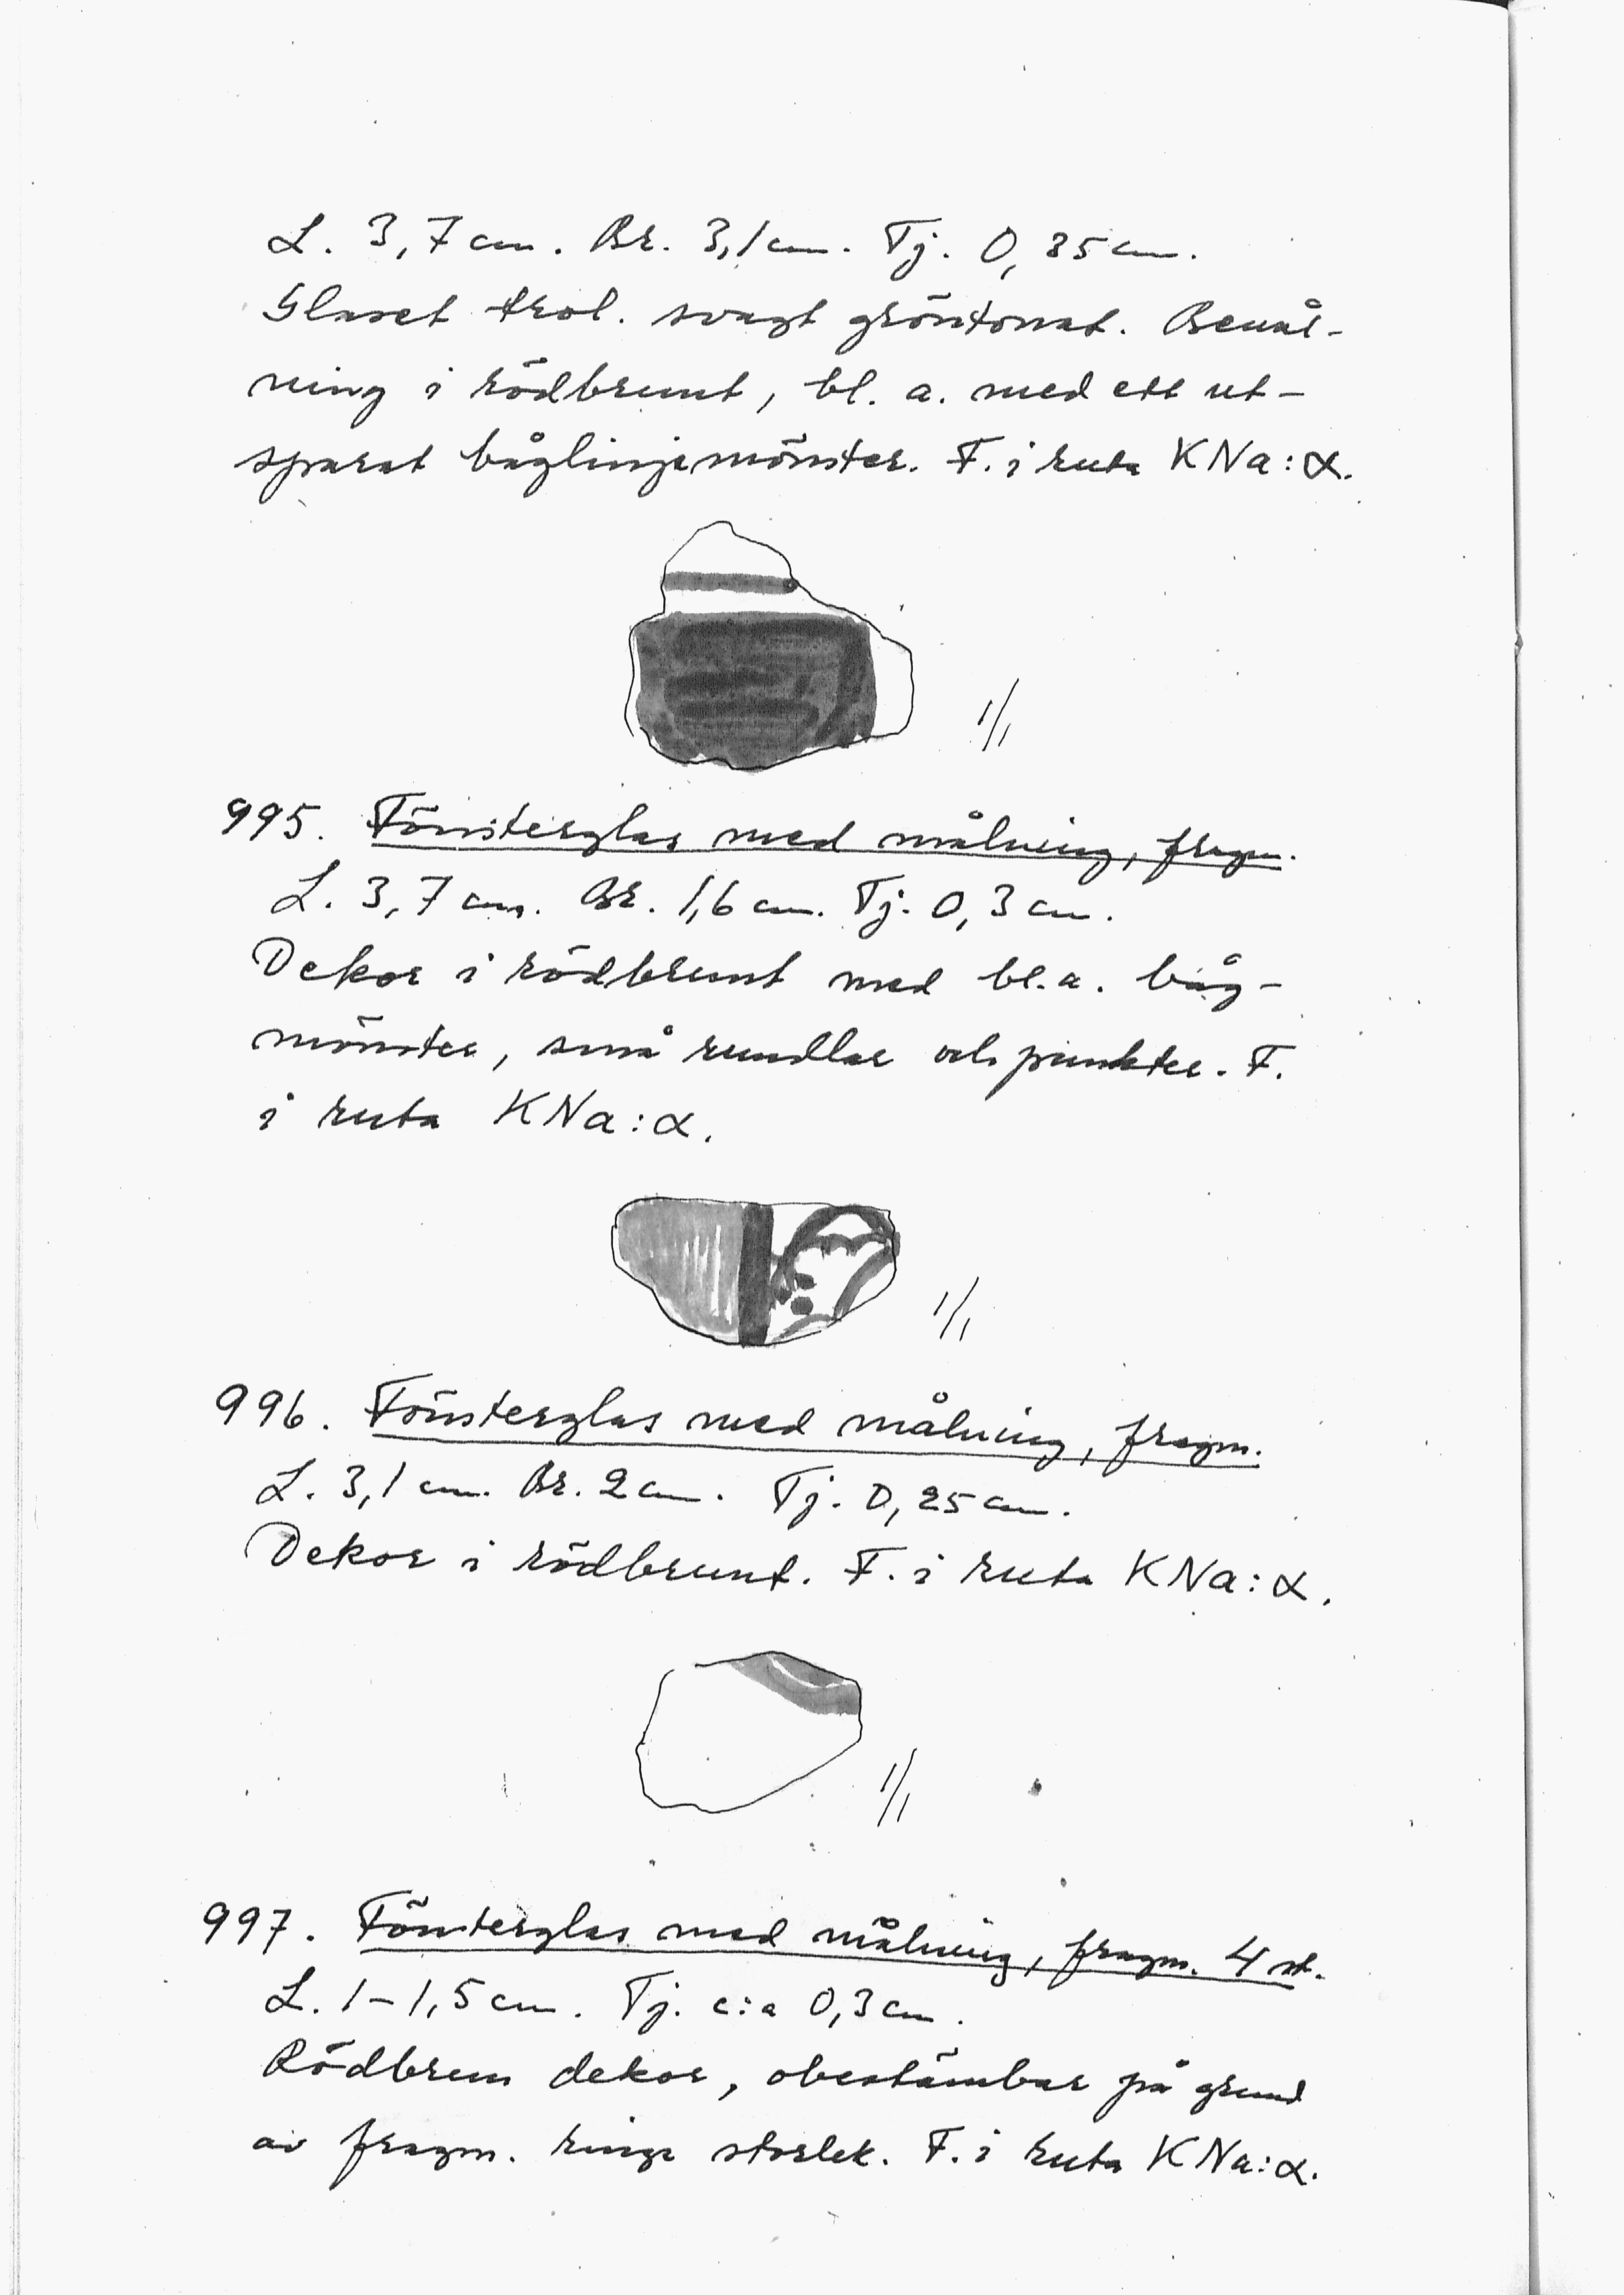 L. 3,7 cm. Br. 3,1 cm. Tj. 0,35 cm.
Glaset trol. svagt gröntonat. Bemål-
ning i rödbrunt, bl. a. med ett ut-
sparat båglinjemönster. F. i ruta KNa:α.
1/1
995. Fönsterglas med målning, fragm.
L. 3,7 cm. Br. 1,6 cm. Tj. 0,3 cm.
Dekor i rödbrunt med bl.a. båg-
mönster, små rundlar och punkter. F.
i ruta KNa:α.
1/1
996. Fönsterglas med målning, fragm.
L. 3,1 cm. Br. 2 cm. Tj. 0,25 cm.
Dekor i rödbrunt. F. i ruta KNa:α.
1/1
997. Fönsterglas med målning, fragm. 4 st.
L. 1-1,5 cm. Tj. c:a 0,3 cm.
Rödbrun dekor, obestämbar på grund
av fragm. ringa storlek. F. i ruta KNa:α.